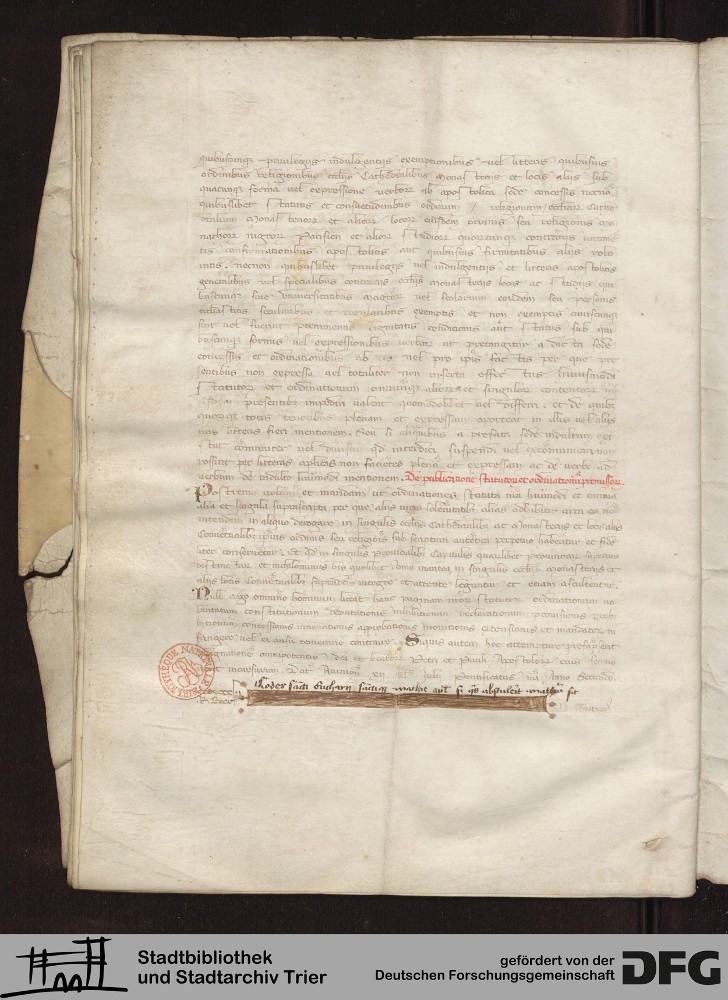 quibuscunque privilegiis indulgentiis exemptionibus vel litteris quibusvis
ordinibus religionibus ecclesiis Cathedralibus monasteriis et locis aliis sub
quacunque forma vel expressione verborum ab apostolica sede concessis necnon
quibuslibet statutis et consuetudinibus ordinum religionum ecclesiarum Cathe
dralium monasteriorum et aliorum locorum eiusdem ordinis seu religionis mo
nachorum nigrorum Parisien et aliorum studiorum quorumcunque contrariis iuramen
tis confirmationibus apostolicis aut quibusvis firmitatibus aliis robo
ratis. necnon quibuslibet privilegiis vel indulgentiis et litteris apostolicis
generalibus vel specialibus contrariis ecclesiis monasteriis locis ac studiis qui
buscunque sive Universitatibus magistrorum vel scolarium eorundem seu personis
ecclesiasticis secularibus et regularibus exemptis et non exemptis cuiuscunque
sint vel fuerint preeminentie dignitatis condicionis aut status sub qui
buscunque formis vel expressionibus verborum ut premittitur a dicta sede
concessis et ordinationibus ab eis vel pro ipsis factis per que pre
sentibus non expressa vel totaliter non inserta effectus huiusmodi
statutorum et ordinationum omnium aliorum et singulorum contentorum in
presentibus impediri valeat quomodolibet vel differri. et de quibus
quorumque totis tenoribus plenam et expressam oporteat in illis vel aliis
nostris litteris fieri mentionem. Seu si aliquibus a prefata sede indultum exi
stat communiter vel divisim quod interdici suspendi vel excommunicari non
possint per litteras apostolicas non facientes plenam et expressam ac de verbo ad
verbum de indulto huiusmodi mentionem. De publicatione statutorum et ordinationum premissorum.
Postremo volumus et mandamus ut ordinationes statuta nostra huiusmodi et omnia
alia et singula suprascripta per que alias iuris solennitates alias adhibitas circa ea non
intendimus in aliquo derogare in singulis ecclesiis Cathedralibus ac Monasteriis et locis aliis
Conventualibus ipsius ordinis seu religionis sub scriptura autentica perpetuo habeantur et fide
liter conserventur. Et quod in singulis provincialibus Capitulis quarumlibet provinciarum superius
distinctarum et nichilominus bis quolibet anno in singulis ecclesiis Monasteriis et
aliis locis Conventualibus supradictis integre et attente legantur et etiam ascultentur.
Nulli ergo omnino hominum liceat hanc paginam nostrorum statutorum ordinationum vo
luntatum constitutionum deputationis inhibitionum declarationum provisionis prohi
bitionum concessionis innovationis approbationis monitionis extensionis et mandatorum in
fringere vel ei ausu temerario contraire. Siquis autem hoc attemptare presumpserit
indignationem omnipotentis dei et beatorum Petri et Pauli Apostolorum eius se no
verit incursurum. Datum Avinion xii kl Julii Pontificatus nostri Anno Secundo.
Codex sancti Eucharii sanctique Mathie apostoli si quis abstulerit anathema sit
BIBLIOTHEQUE NATIONALE
Stadtbibliothek
und Stadtarchiv Trier
gefördert von der
Deutschen Forschungsgemeinschaft
DFG